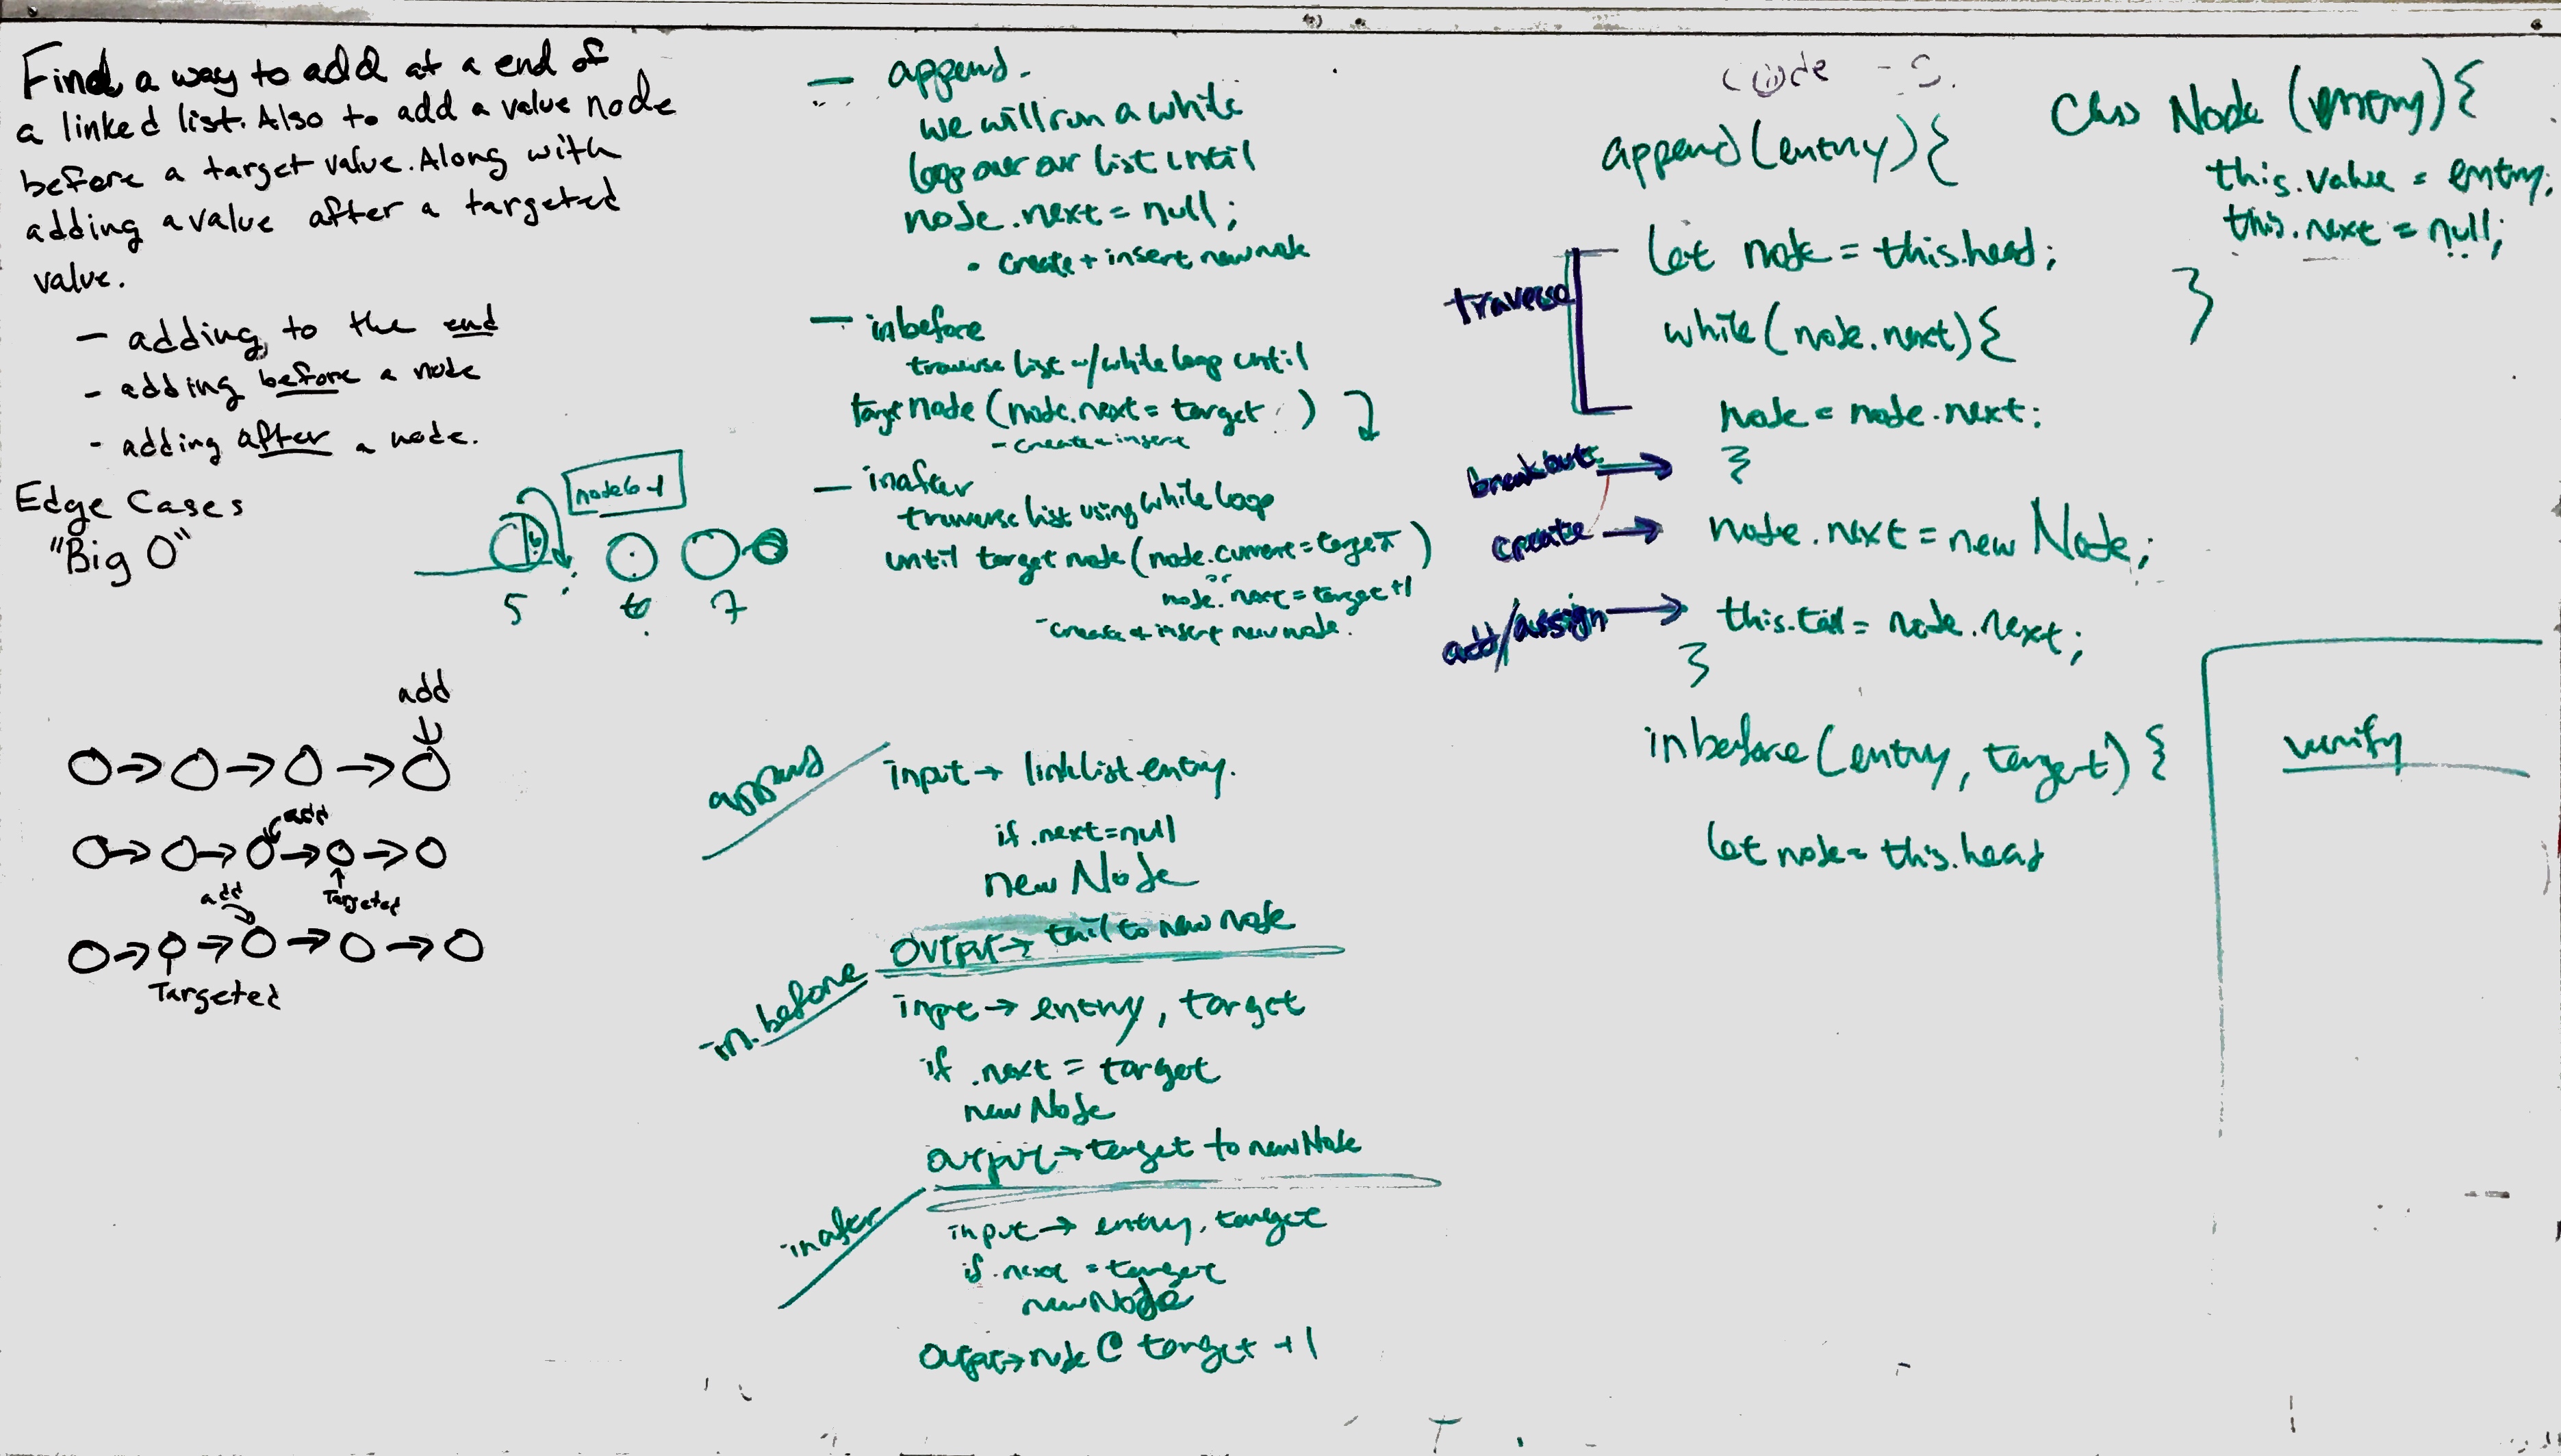 Find a way to add at a end of
a linked list. Also to add a value node
before a target value. Along with
adding a value after a targeted
value.
- adding to the end
- adding before a node
- adding after a node.
Edge Cases
"Big O"
node6-1
5 6 7
add
add
Targeted
add
Targeted
- append.
we will run a while
loop over our list until
node.next = null;
• create + insert new node
- inbefore
traverse list w/while loop until
target node (node.next = target )
- create + insert
- inafter
traverse list using while loop
until target node (node.current = target)
or
node.next = target +1
- create + insert new node.
append
input → linklist.entry.
if .next = null
new Node
OUTPUT → tail to new node
in.before
input → entry, target
if .next = target
new Node
output → target to new Node
inafter
input → entry, target
if .next = target
new Node
Output → node @ target +1
code
append(entry){
traverse
let node = this.head;
while(node.next){
node = node.next;
breakout → }
create → node.next = new Node;
add/assign → this.tail = node.next;
}
inbefore(entry, target) {
let node = this.head
Class Node (entry){
this.value = entry;
this.next = null;
}
verify